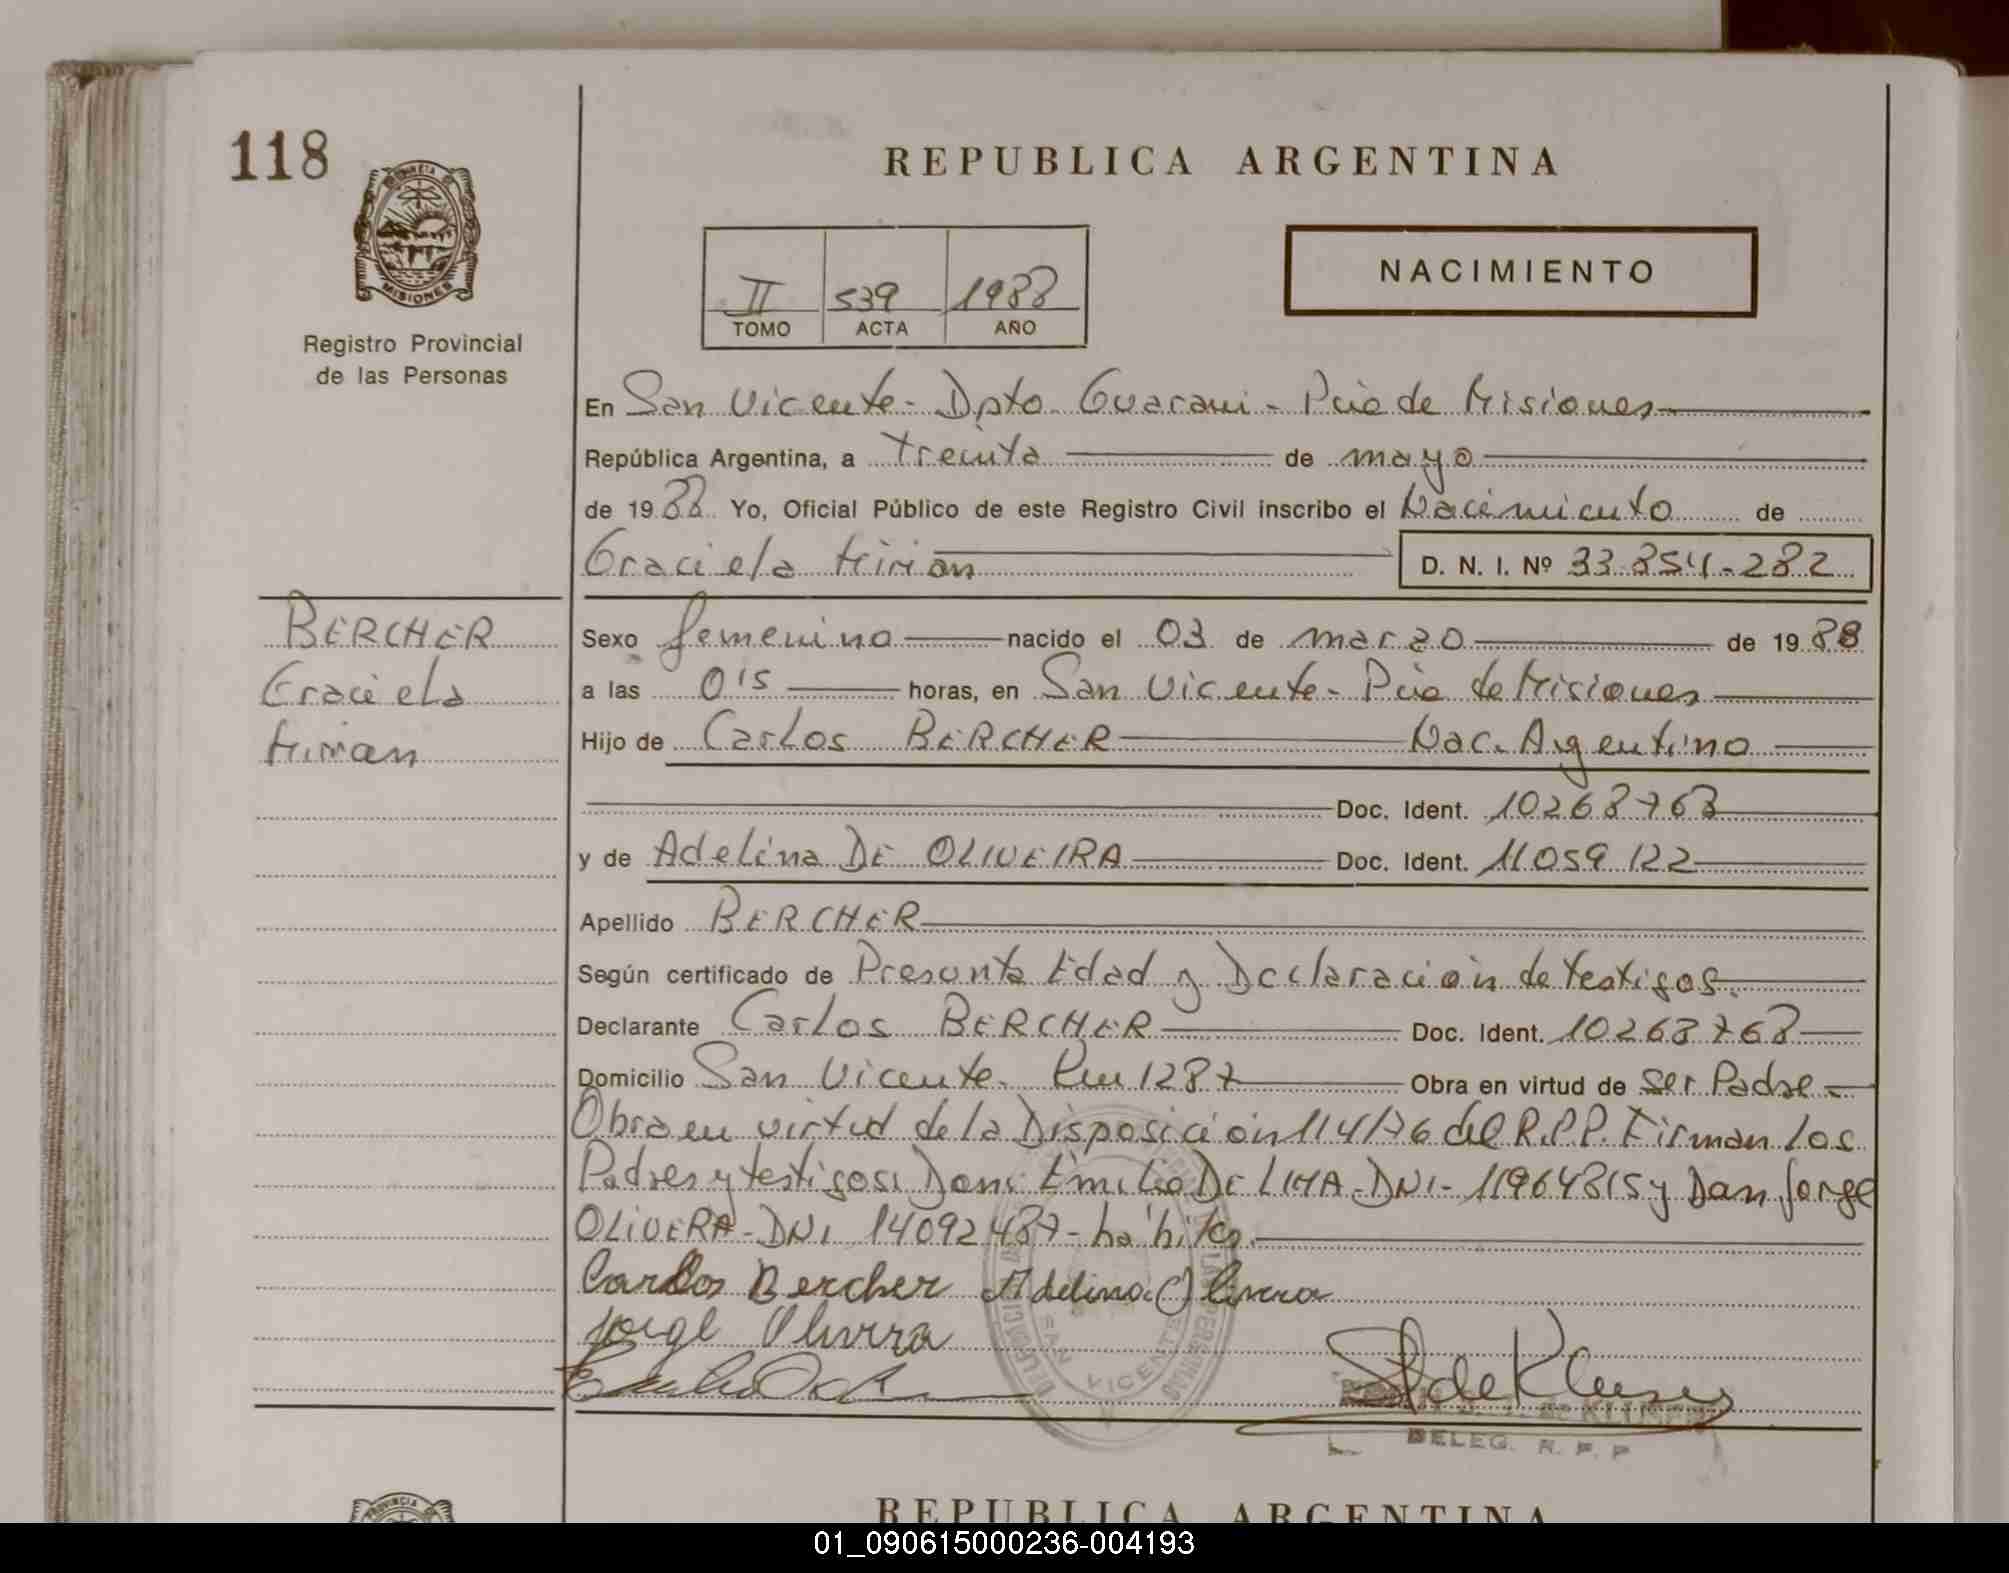 118
PROVINCIA DE
MISIONES
Registro Provincial
de las Personas
REPUBLICA ARGENTINA
II 539 1988
TOMO ACTA AÑO
NACIMIENTO
En San Vicente - Dpto. Guarani - Pcia de Misiones
República Argentina, a treinta de mayo
de 1988 Yo, Oficial Público de este Registro Civil inscribo el Nacimiento de
Graciela Mirian D. N. I. Nº 33.854.282
BERCHER
Graciela
Mirian
Sexo femenino nacido el 03 de marzo de 1988
a las 0'15 horas, en San Vicente - Pcia de Misiones
Hijo de Carlos BERCHER Nac. Argentino
Doc. Ident. 10268768
y de Adelina DE OLIVEIRA Doc. Ident. 11059122
Apellido BERCHER
Según certificado de Presunta Edad y Declaración de testigos.
Declarante Carlos BERCHER Doc. Ident. 10268768
Domicilio San Vicente. Km 1287 Obra en virtud de ser Padre
Obra en virtud de la Disposición 114/76 del R.P.P. Firman los
Padres y testigos: Don: Emilio DE LIMA - DNI - 11964815 y Don Jorge
OLIVERA - DNI 14092487 - hábiles.
Carlos Bercher Adelina Olivera
Jorge Olivera
SAN VICENTE
de KLUSENER
DELEG. R. P. P
REPUBLICA ARGENTINA
01_090615000236-004193